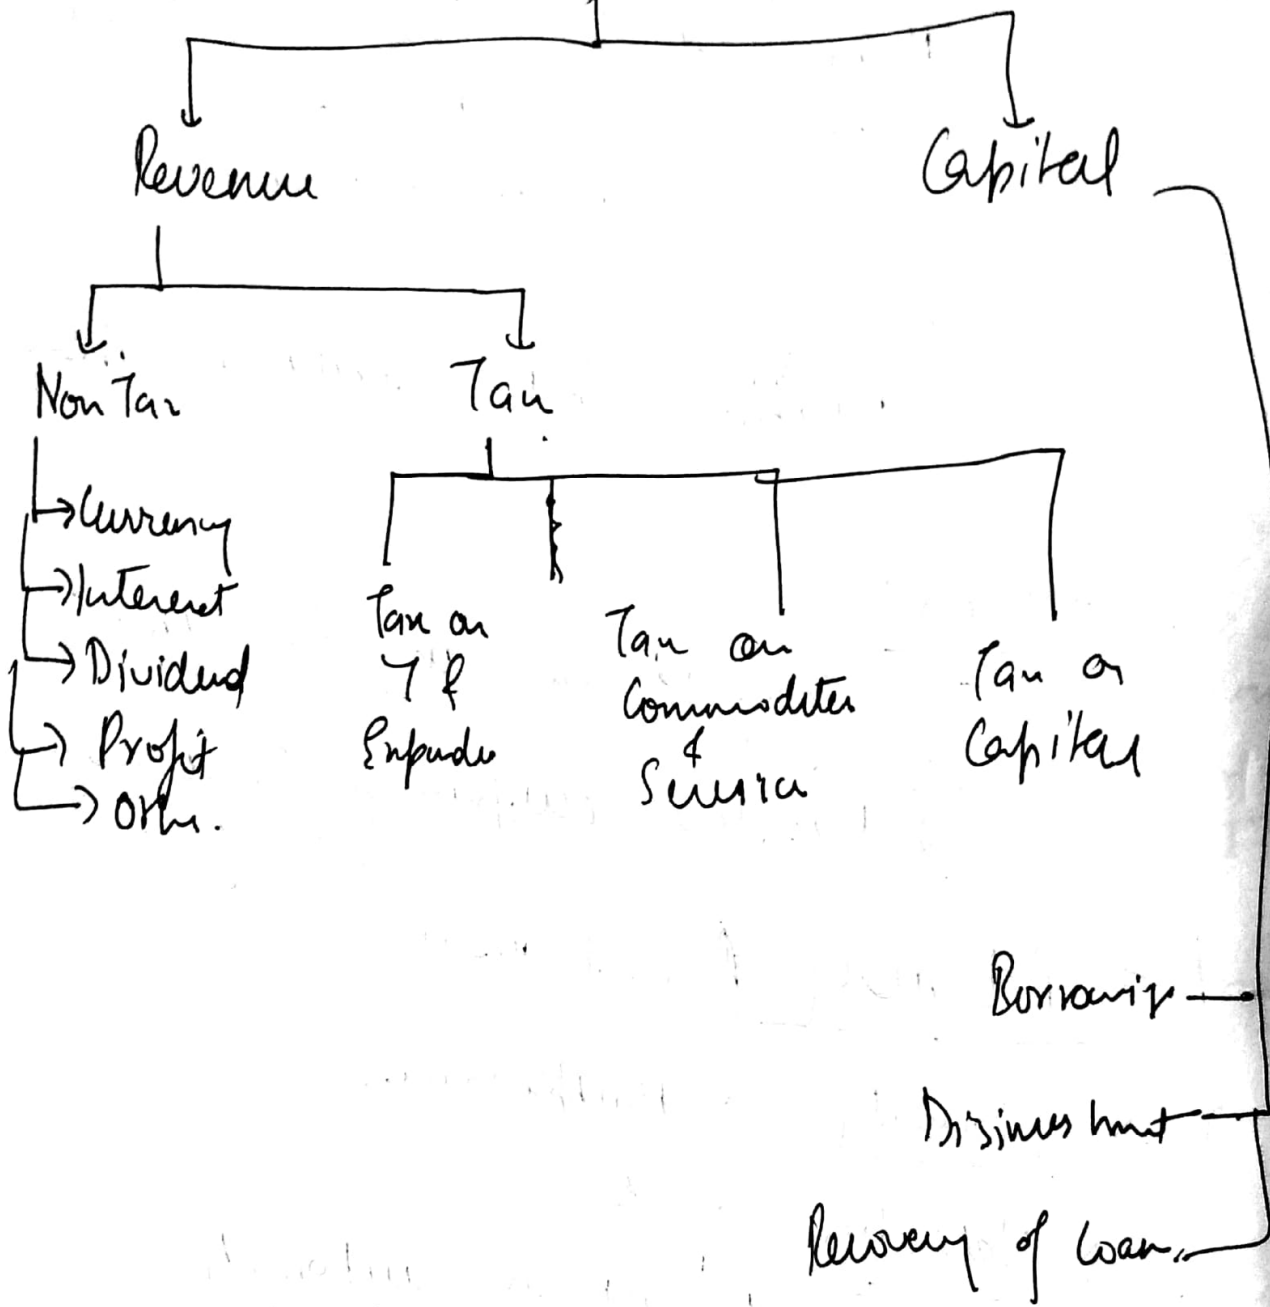 Revenue
Capital
Non Tax
Tax
Currency
Interest
Dividend
Profit
Other.
Tax on
Y &
Tax on
Commodites
&
Service
Tax on
Capital
Borrowings
Disinvestment
Recovery of Loan.